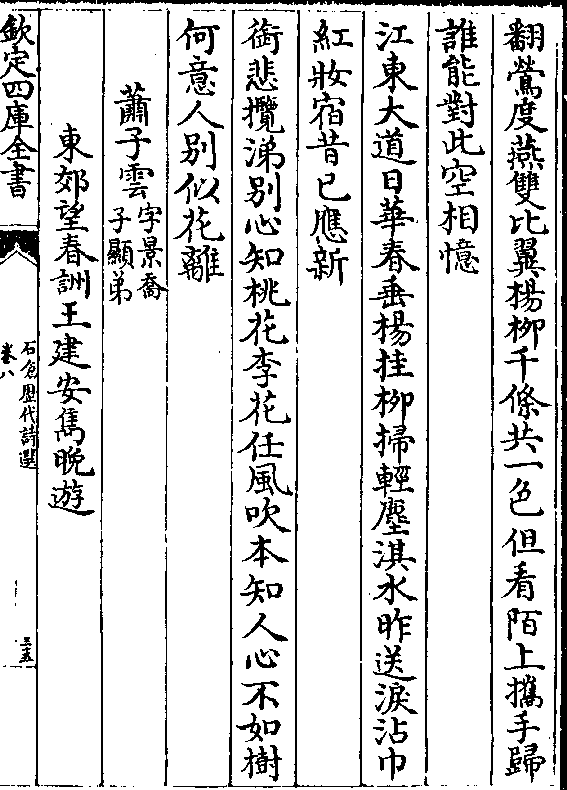 翻鶯度燕雙比翼楊柳千條共一色但看陌上攜手歸
誰能對此空相憶
江東大道日華春垂楊挂柳掃輕塵淇水昨送淚沾巾
紅妝宿昔已應新
銜悲攬涕别心知桃花李花任風吹本知人心不如樹
何意人别似花離
蕭子雲字景喬子顯弟
東郊望春詶王建安雋晚遊
欽定四庫全書
石倉歷代詩選
卷八
三五